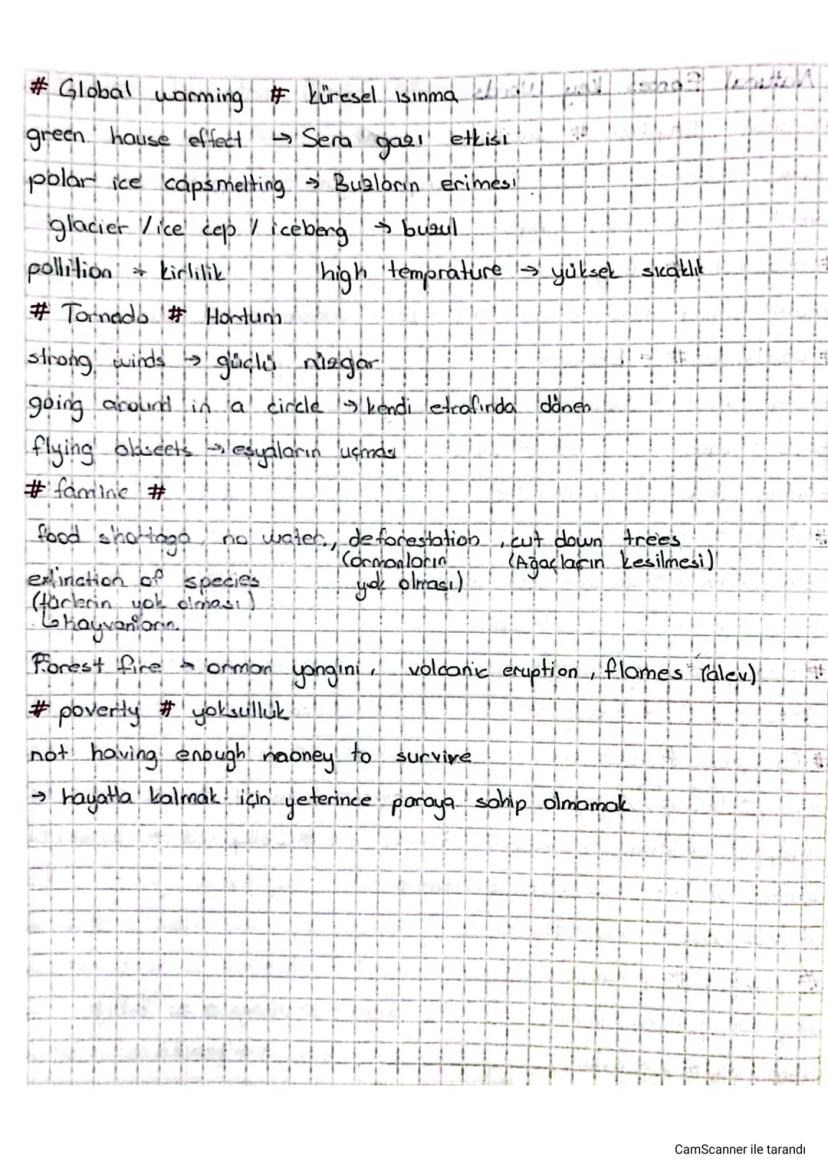 # Global warming # küresel ısınma
green house effect → Sera gazı etkisi
polar ice capsmelting → Buzların erimesi
glacier / ice cep / iceberg → buzul
pollition * kirlilik high temprature → yüksek sıcaklık
# Tornado # Hortum
strong winds → güçlü rüzgar
going around in a circle → kendi etrafında dönen
flying obseets → eşyaların uçması
# famine #
food shortage, no water, deforestation, cut down trees
(ormanların (Ağaçların kesilmesi)
extinction of species yok olması)
(türlerin yok olması)
↳ hayvanların.
Forest fire → orman yangını, volcanic eruption, flames (alev)
# poverty # yoksulluk
not having enough maoney to survive
→ hayatta kalmak için yeterince paraya sahip olmamak
CamScanner ile tarandı